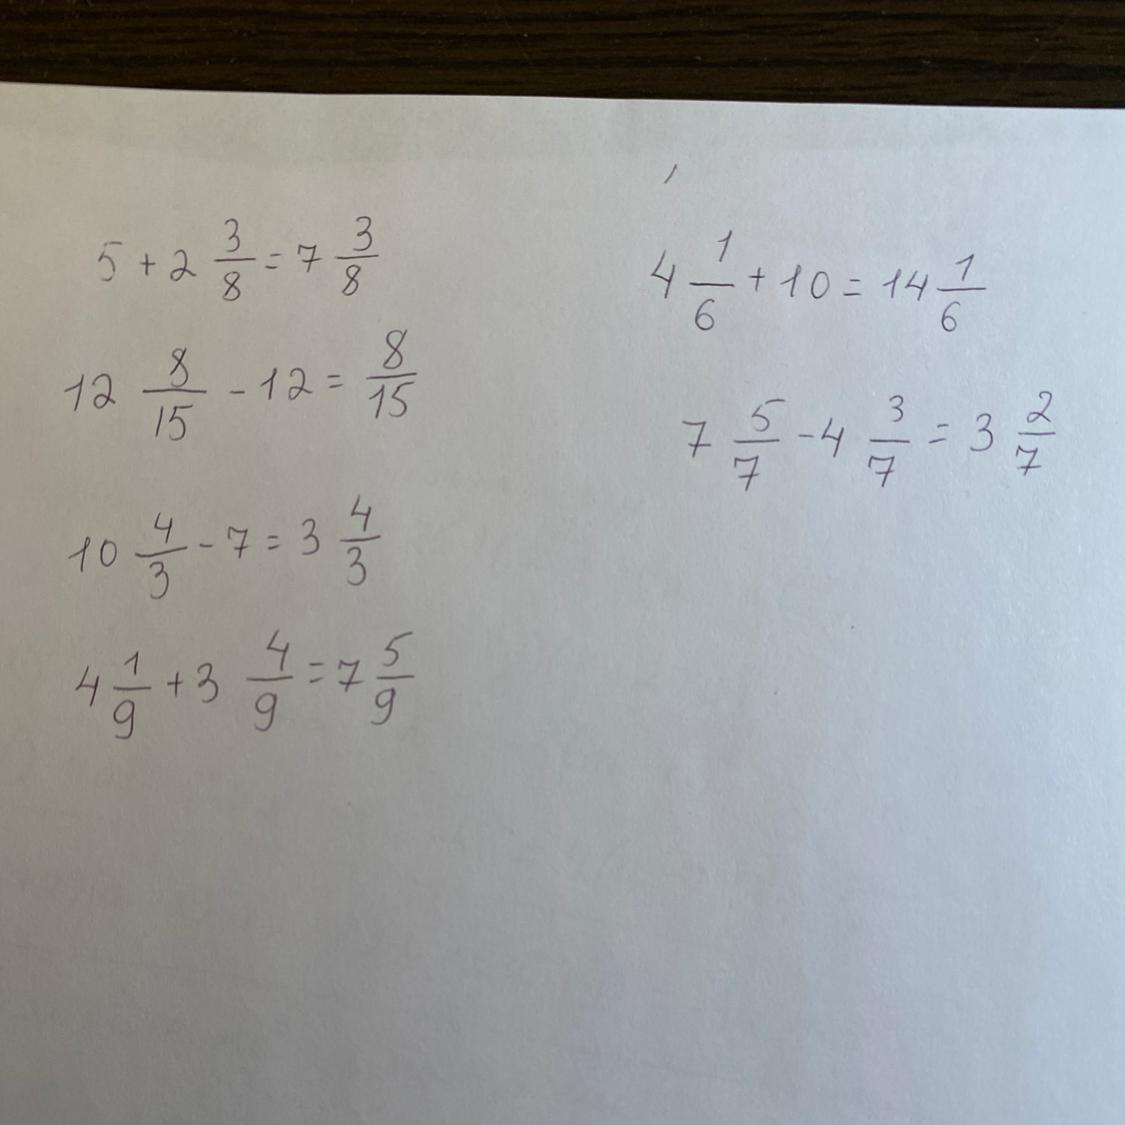 5 + 2 3/8 = 7 3/8
12 8/15 - 12 = 8/15
10 4/3 - 7 = 3 4/3
4 1/9 + 3 4/9 = 7 5/9
4 1/6 + 10 = 14 1/6
7 5/7 - 4 3/7 = 3 2/7